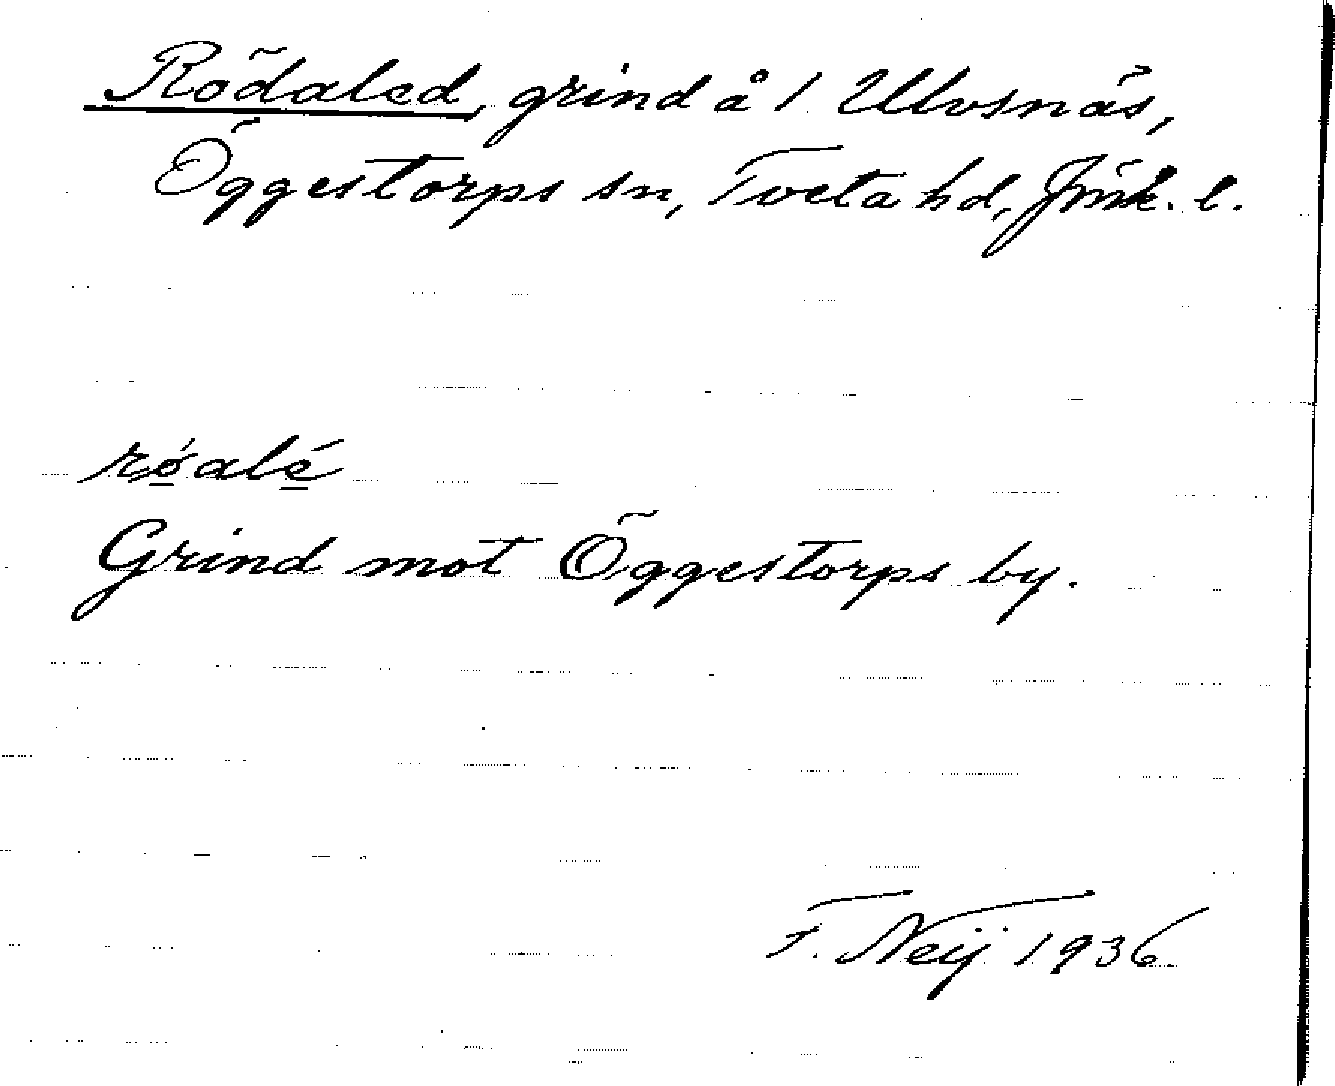 Rödaled, grind å 1 Ulvsnäs,
Öggestorps sn, Tveta hd, Jönk. l.
rǿ̱alé̱
Grind mot Öggestorps by.
F. Neij 1936